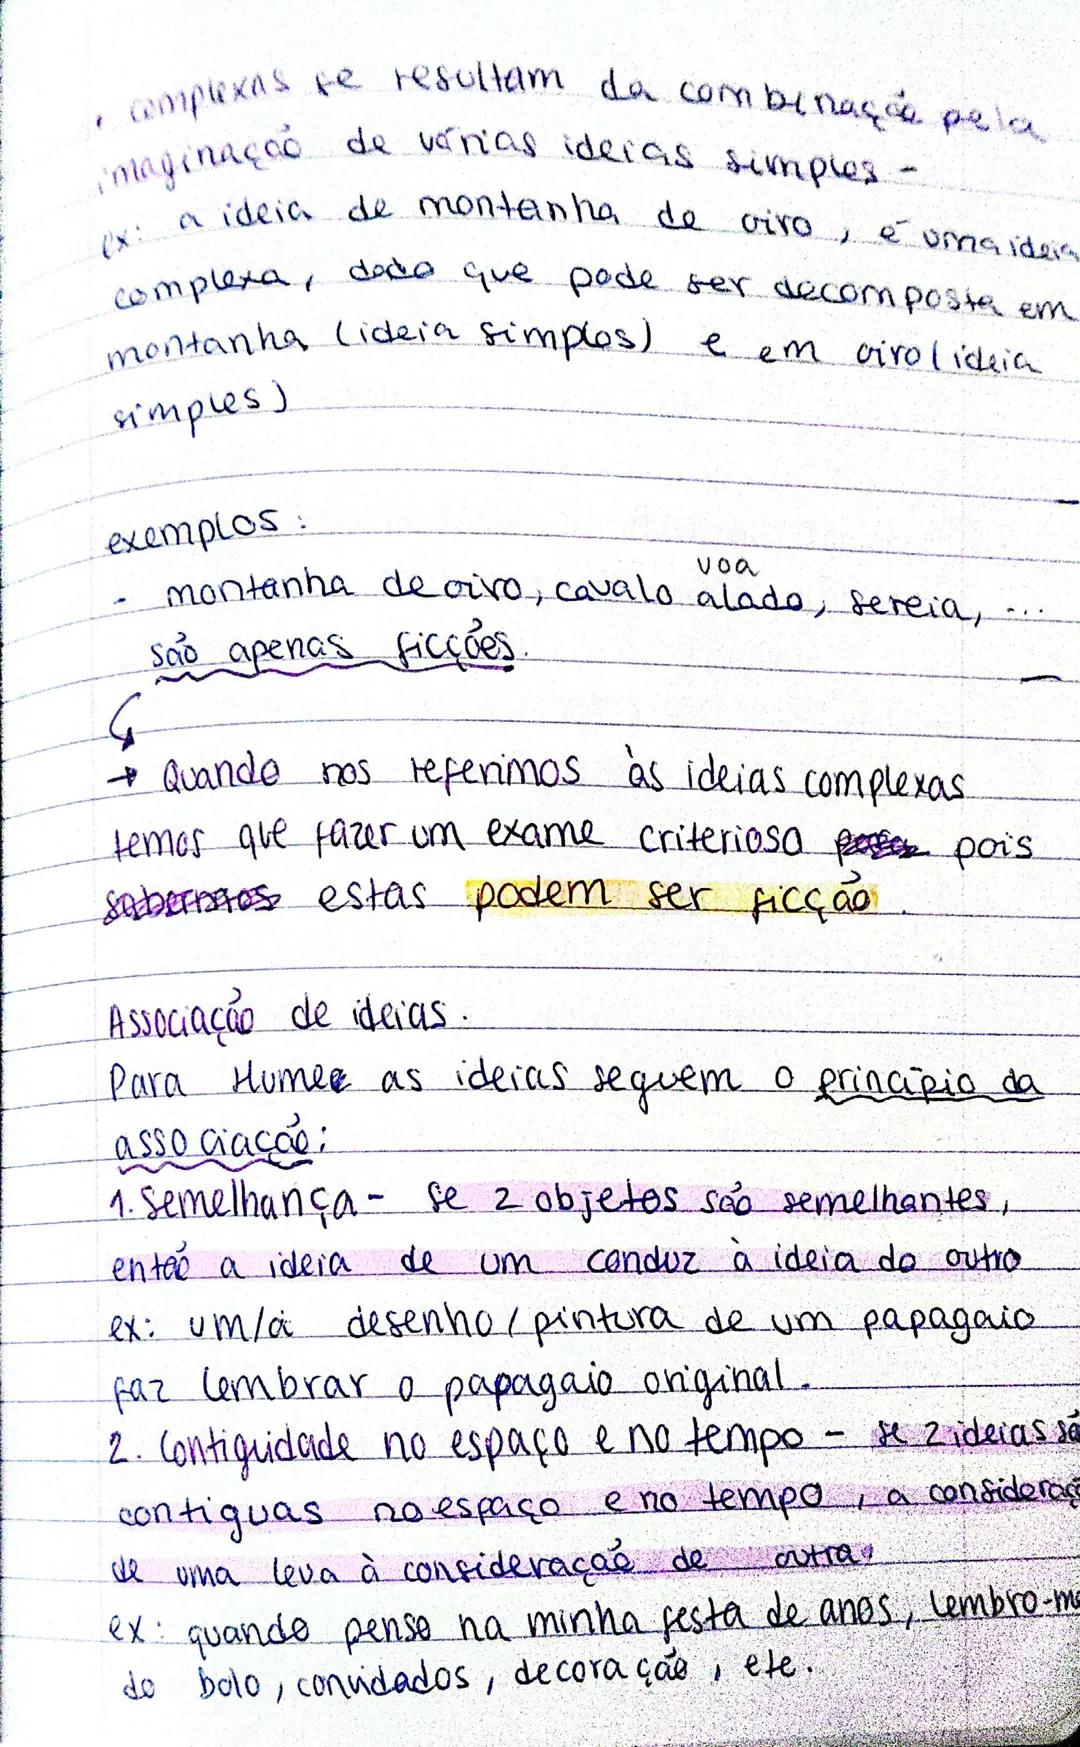 • complexas se resultam da combinação pela
imaginação de várias ideias simples -
ex: a ideia de montanha de oiro, é uma ideia
complexa, dado que pode ser decomposta em
montanha (ideia simples) e em oiro (ideia
simples)
exemplos:
voa
- montanha de oiro, cavalo alado, sereia, ...
são apenas ficções.
→ Quando nos referimos às ideias complexas
temos que fazer um exame criterioso pois
estas podem ser ficção.
Associação de ideias.
Para Hume as ideias seguem o princípio da
associação:
1. Semelhança - se 2 objetos são semelhantes,
então a ideia de um conduz à ideia do outro
ex: um/a desenho/pintura de um papagaio
faz lembrar o papagaio original.
2. Contiguidade no espaço e no tempo - se 2 ideias sã
contiguas no espaço e no tempo, a consideraç
de uma leva à consideração de outra.
ex: quando penso na minha festa de anos, lembro-me
do bolo, convidados, decoração, etc.